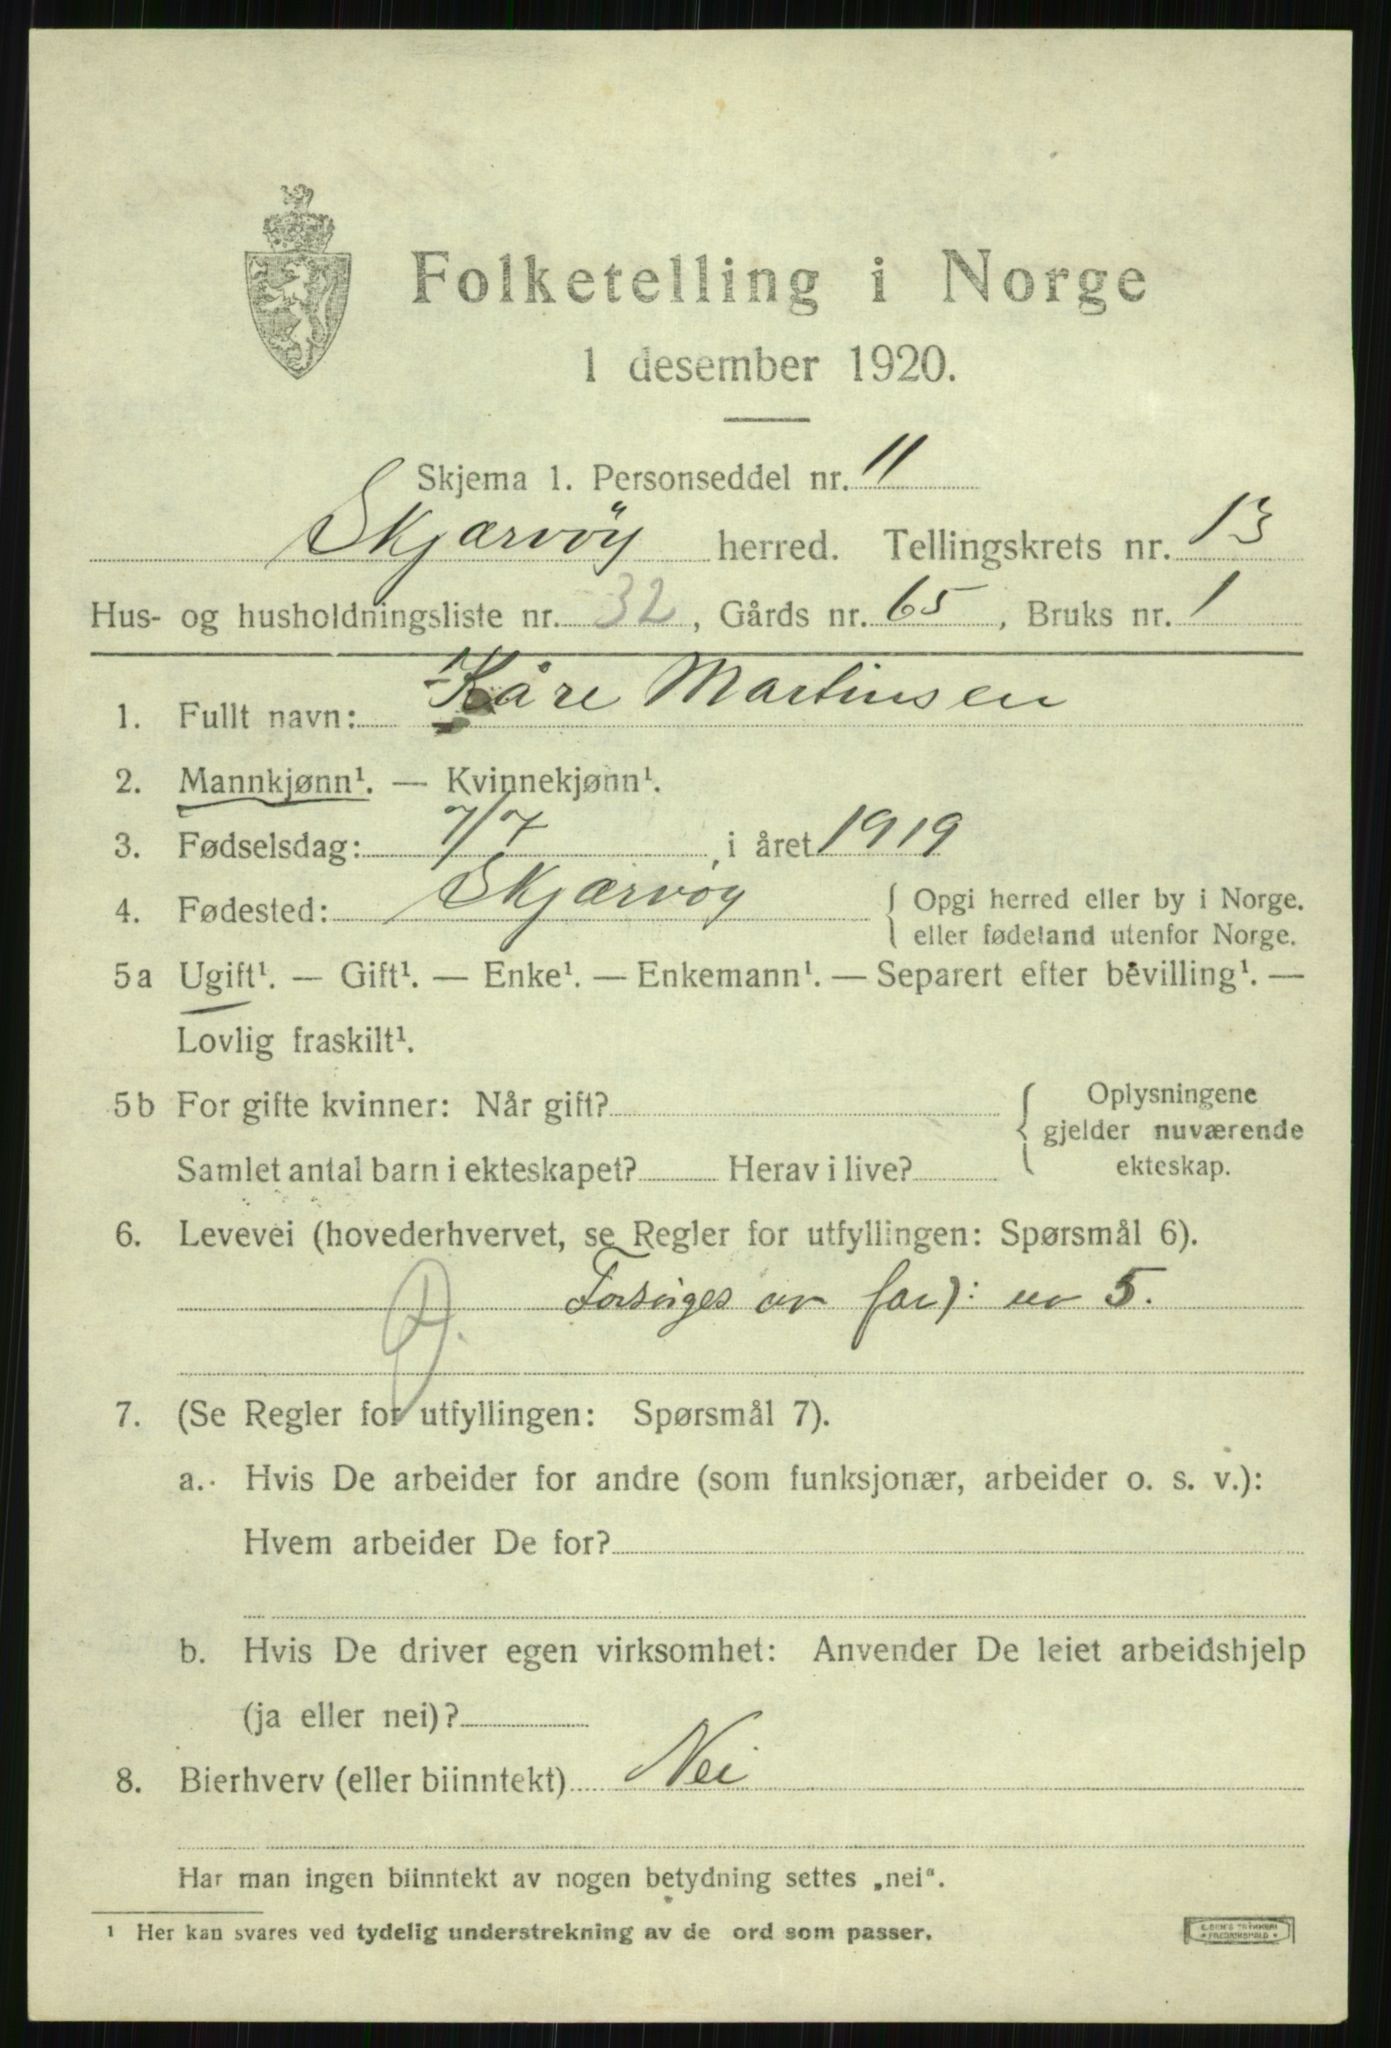 Folketelling i Norge
1 desember 1920.
Skjema 1. Personseddel nr. 11
Skjærvöy herred. Tellingskrets nr. 13
Hus- og husholdningsliste nr. 32, Gårds nr. 65, Bruks nr. 1
1. Fullt navn: Kåre Martinsen
2. Mannkjønn¹. — Kvinnekjønn¹.
3. Fødselsdag: 7/7, i året 1919
4. Fødested: Skjærvøy { Opgi herred eller by i Norge.
eller fødeland utenfor Norge.
5a Ugift¹. — Gift¹. — Enke¹. — Enkemann¹. — Separert efter bevilling¹. —
Lovlig fraskilt¹.
5b For gifte kvinner: Når gift? { Oplysningene
gjelder nuværende
Samlet antal barn i ekteskapet? Herav i live? ekteskap.
6. Levevei (hovederhvervet, se Regler for utfyllingen: Spørsmål 6).
Forsørges av far): nr 5.
7. (Se Regler for utfyllingen: Spørsmål 7).
a. Hvis De arbeider for andre (som funksjonær, arbeider o. s. v.):
Hvem arbeider De for?
b. Hvis De driver egen virksomhet: Anvender De leiet arbeidshjelp
(ja eller nei)?
8. Bierhverv (eller biinntekt) Nei
Har man ingen biinntekt av nogen betydning settes „nei“.
¹ Her kan svares ved tydelig understrekning av de ord som passer.